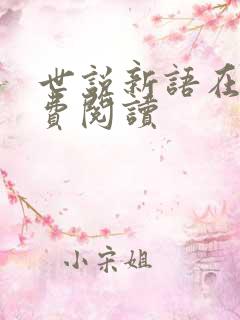 世說新語在
費閱讀
小宋姐